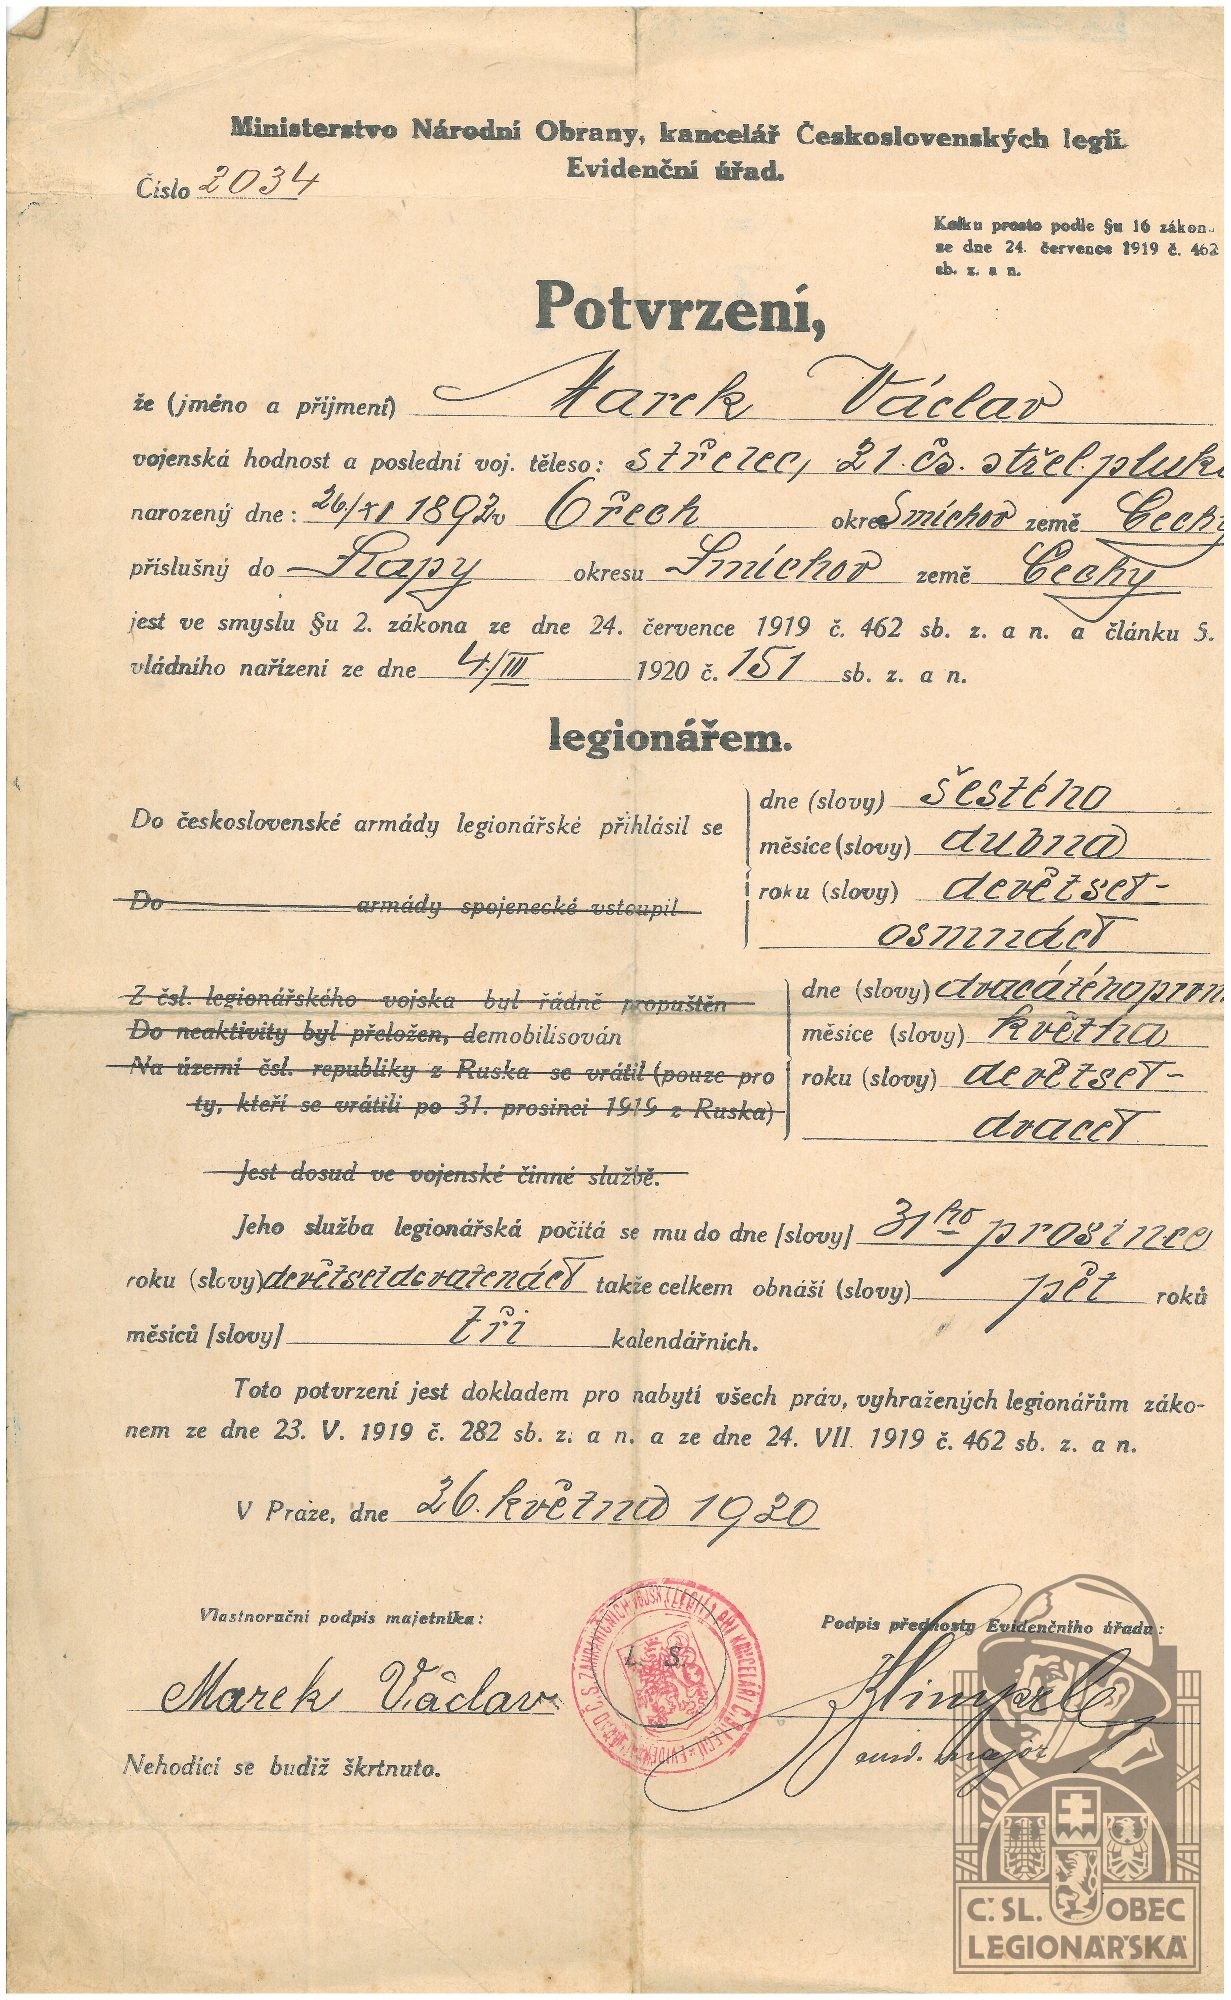 Ministerstvo Národní Obrany, kancelář Československých legií.
Evidenční úřad.
Číslo 2034
Kolku prosto podle §u 16 zákon.
se dne 24. července 1919 č. 462
sb. z. a n.
Potvrzení,
že (jméno a příjmení) Marek Václav
vojenská hodnost a poslední voj. těleso: střelec, 21. čs. střel. pluku
narozený dne: 26/XI 1892 v Ořech okres Smíchov země Čechy
příslušný do Slapy okresu Smíchov země Čechy
jest ve smyslu §u 2. zákona ze dne 24. července 1919 č. 462 sb. z. a n. a článku 5.
vládního nařízení ze dne 4./III 1920 č. 151 sb. z. a n.
legionářem.
Do československé armády legionářské přihlásil se
dne (slovy) šestého
měsíce (slovy) dubna
Do armády spojenecké vstoupil
roku (slovy) devětset-
osmnáct
Z čsl. legionářského vojska byl řádně propuštěn
dne (slovy) dvacátéhoprvn
Do neaktivity byl přeložen, demobilisován
měsíce (slovy) května
Na území čsl. republiky z Ruska se vrátil (pouze pro
roku (slovy) devětset-
ty, kteří se vrátili po 31. prosinci 1919 z Ruska)
dvacet
Jest dosud ve vojenské činné službě.
Jeho služba legionářská počítá se mu do dne [slovy] 31ho prosince
roku (slovy) devětsetdevatenáct takže celkem obnáší (slovy) pět roků
měsíců [slovy] tři kalendářních.
Toto potvrzení jest dokladem pro nabytí všech práv, vyhražených legionářům záko-
nem ze dne 23. V. 1919 č. 282 sb. z. a n. a ze dne 24. VII. 1919 č. 462 sb. z. a n.
V Praze, dne 26. května 1920
Vlastnoruční podpis majetníka:
Podpis přednosty Evidenčního úřadu:
L. S.
Marek Václav
major
Nehodící se budiž škrtnuto.
Č. SL. OBEC
LEGIONÁŘSKÁ